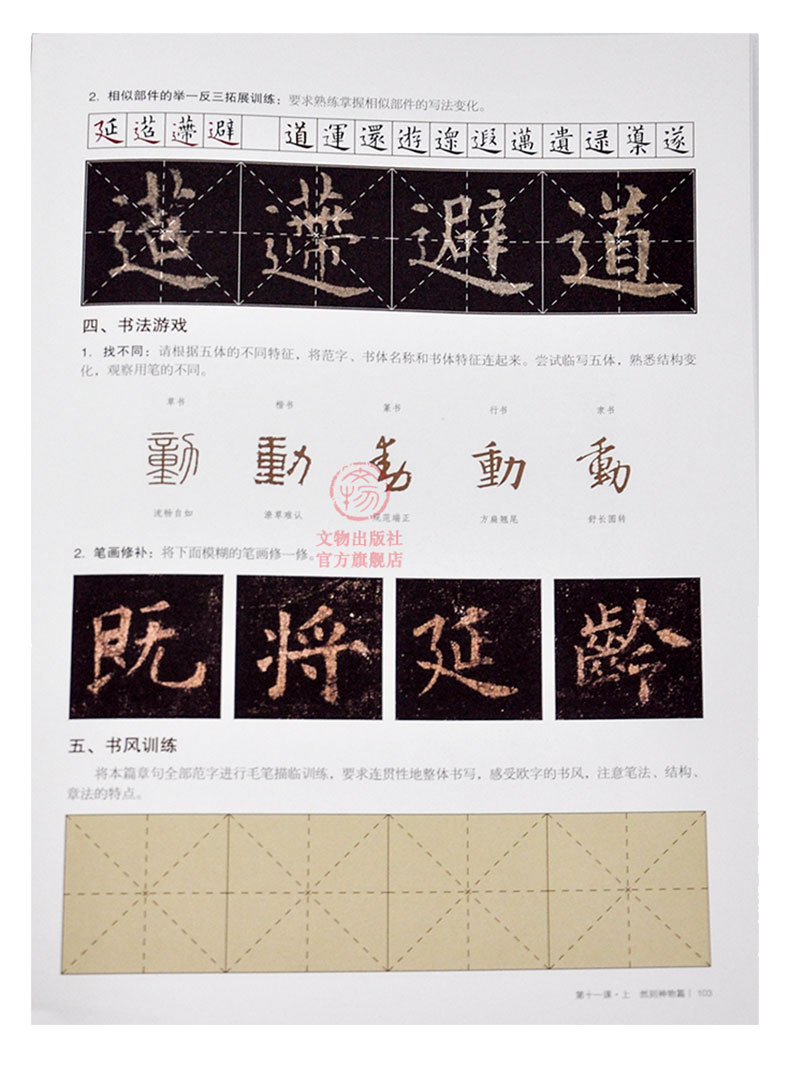 2. 相似部件的举一反三拓展训练：要求熟练掌握相似部件的写法变化。
延 避 道 運 還 遊 邈 遐 邁 遺 逯 遂
避 道
四、书法游戏
1. 找不同：请根据五体的不同特征，将范字、书体名称和书体特征连起来。尝试临写五体，熟悉结构变
化，观察用笔的不同。
草书 楷书 篆书 行书 隶书
動 動 動 動 動
流畅自如 潦草难认 规范端正 方扁翘尾 舒长圆转
文物出版社
官方旗舰店
2. 笔画修补：将下面模糊的笔画修一修。
既 将 延 齡
五、书风训练
将本篇章句全部范字进行毛笔描临训练，要求连贯性地整体书写，感受欧字的书风，注意笔法、结构、
章法的特点。
第十一课·上 然则神物篇 | 103